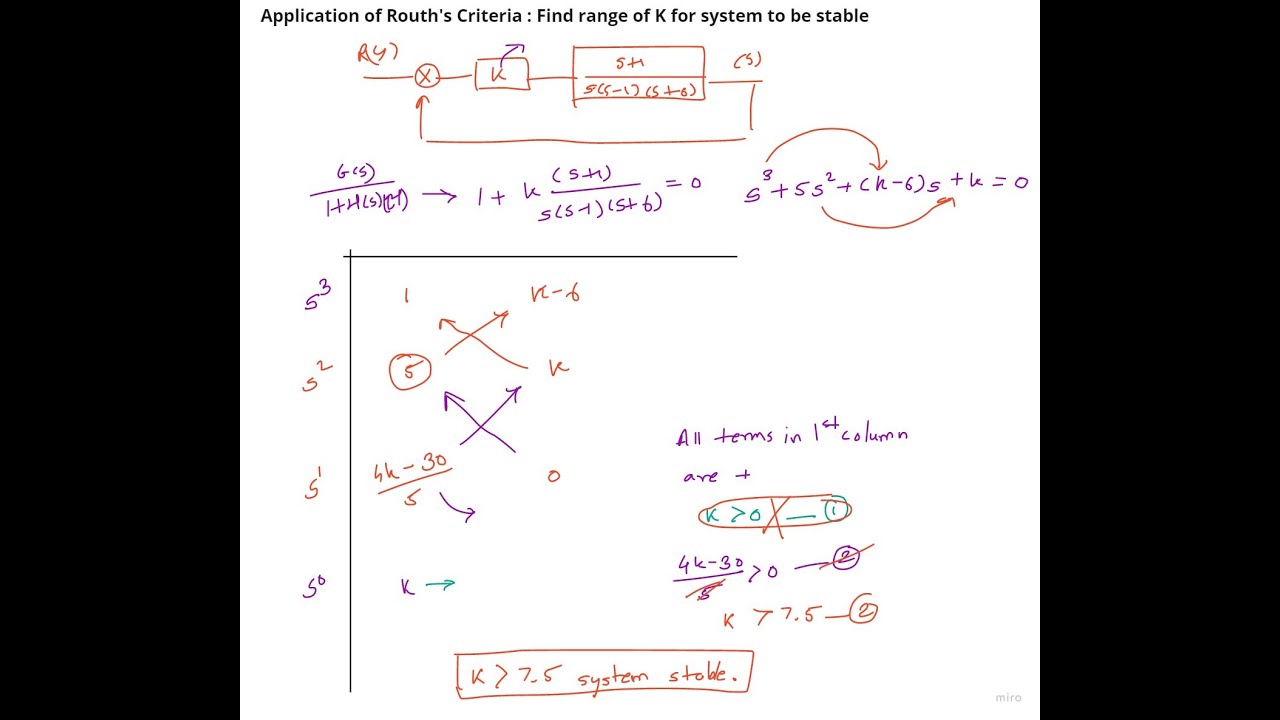 Application of Routh's Criteria : Find range of K for system to be stable
R(s) K s+1 / s(s-1)(s+6) C(s)
G(s) / 1+H(s)G(s) → 1 + k (s+1) / s(s-1)(s+6) = 0
s³ + 5s² + (k-6)s + k = 0
s³ 1 k-6
s² 5 k
s¹ 4k-30 / 5 0
s⁰ k →
All terms in 1st column
are +
k > 0 — ①
4k-30 / 5 > 0 — ②
k > 7.5 — ②
k > 7.5 system stable.
miro